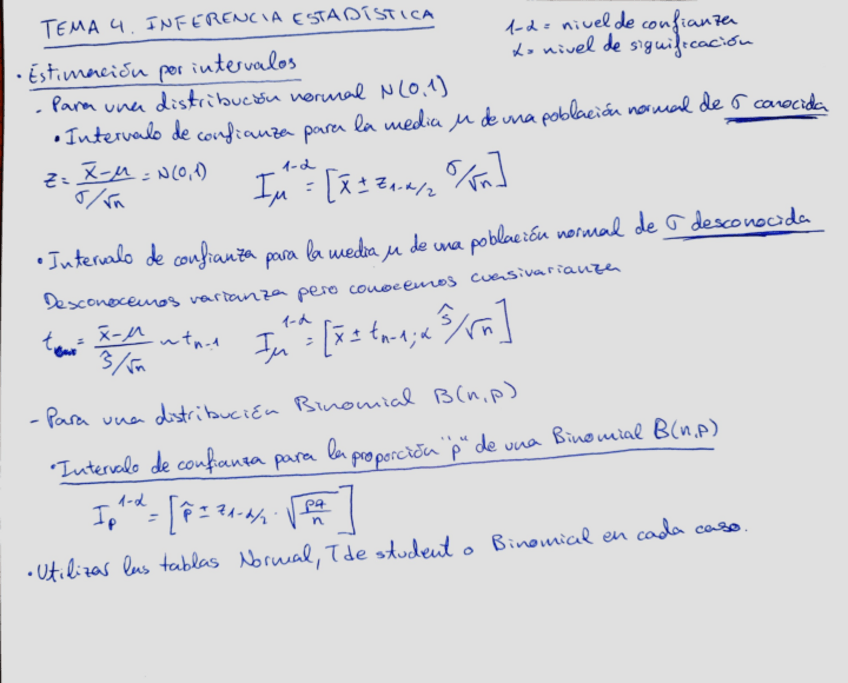 TEMA 4. INFERENCIA ESTADÍSTICA
1-α = nivel de confianza
α = nivel de significación
· Estimación por intervalos
- Para una distribución normal N(0,1)
• Intervalo de confianza para la media μ de una población normal de σ conocida
z = (x̄-μ)/(σ/√n) = N(0,1)   I_μ^{1-α} = [x̄ ± z_{1-α/2} σ/√n]
• Intervalo de confianza para la media μ de una población normal de σ desconocida
Desconocemos varianza pero conocemos cuasivarianza
t = (x̄-μ)/(ŝ/√n) ~ t_{n-1}   I_μ^{1-α} = [x̄ ± t_{n-1;α} ŝ/√n]
- Para una distribución Binomial B(n,p)
• Intervalo de confianza para la proporción "p" de una Binomial B(n,p)
I_p^{1-α} = [p̂ ± z_{1-α/2} · √(pq/n)]
• Utilizar las tablas Normal, T de student o Binomial en cada caso.